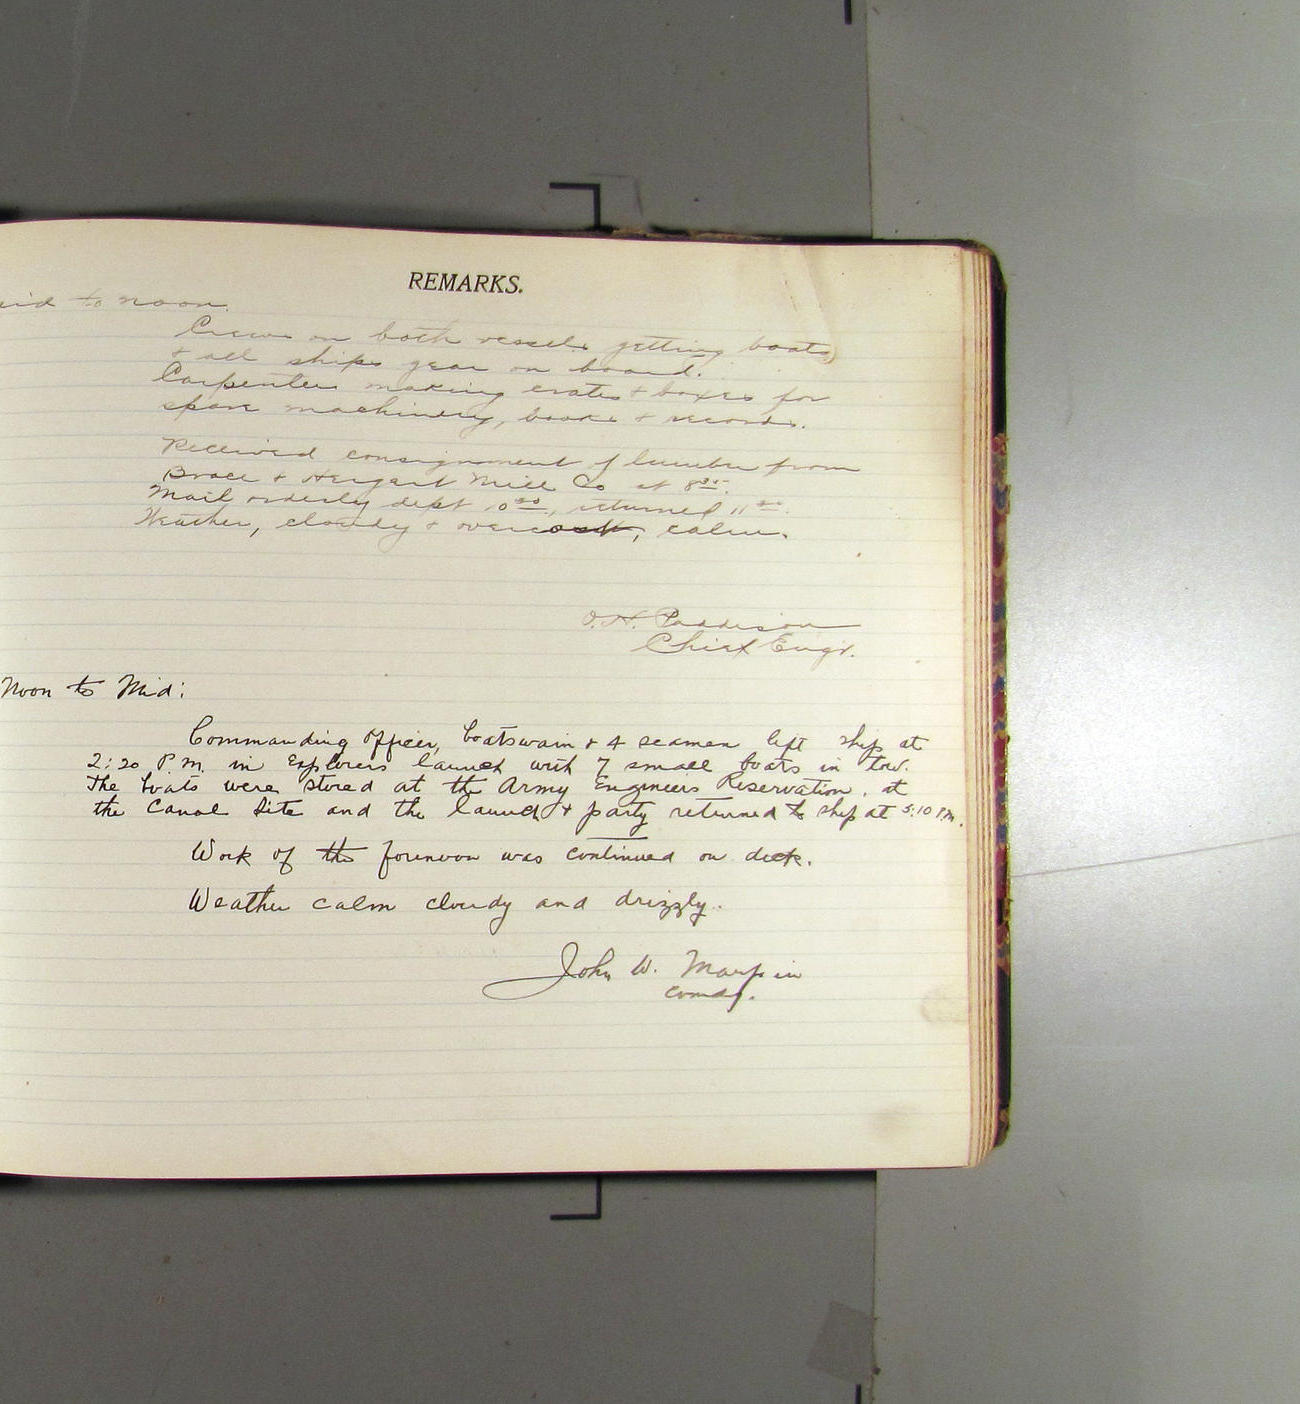 REMARKS.
Mid to noon.
Crews on both vessels getting boats
& all ships gear on board.
Carpenters making crates & boxes for
spare machinery, books & records.
Received consignment of lumber from
Brace & Hergert Mill Co at
Mail orderly dept returned
Weather, cloudy & overcast, calm.
O.H. Paddison
Chief Engr.
Noon to Mid:
Commanding Officer, boatswain & 4 seamen left ship at
2:20 P.M. in Explorers launch with 7 small boats in tow.
The boats were stored at the Army Engineers Reservation, at
the Canal Site and the launch & party returned to ship at 5:10 P.M.
Work of the forenoon was continued on deck.
Weather calm cloudy and drizzly.
John W. Maupin
Comdg.